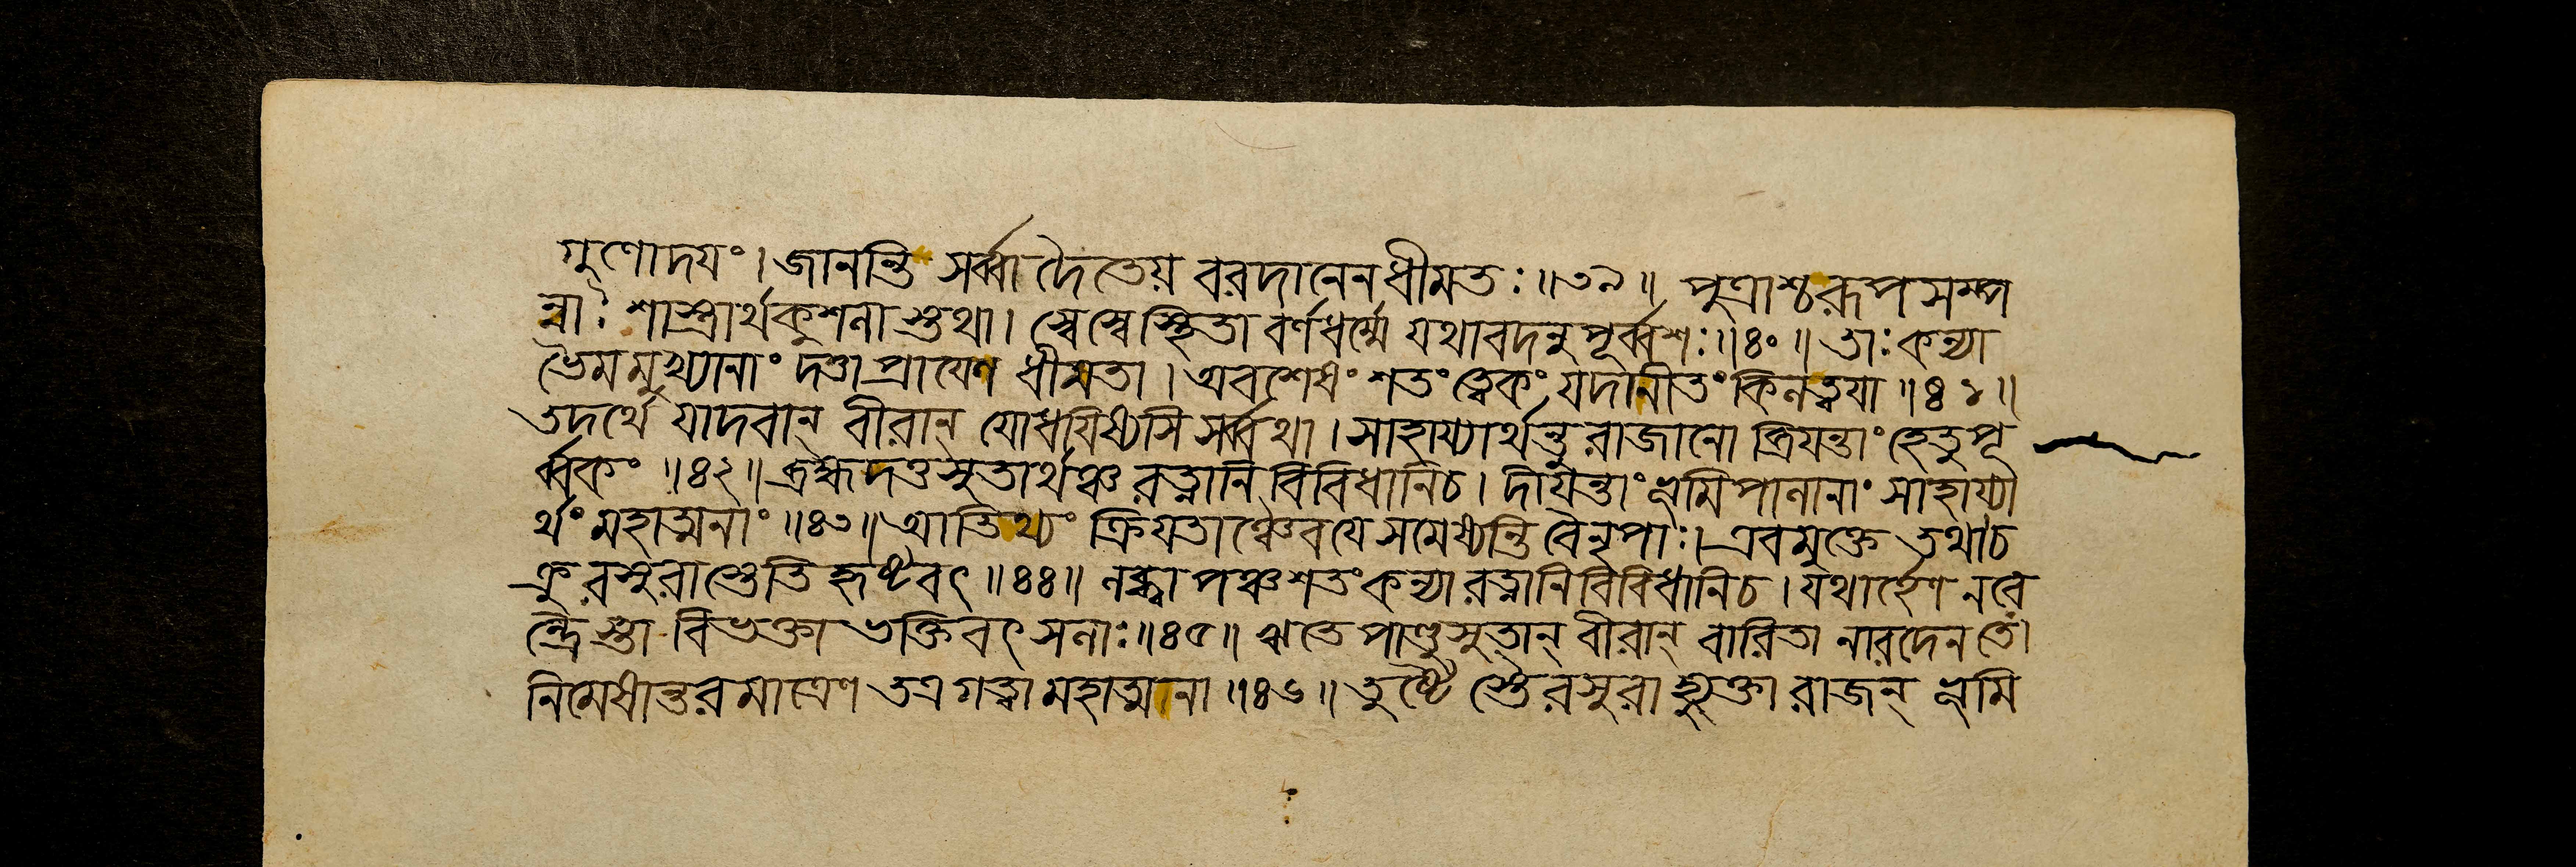 গুণোদয়ং। জানন্তি সর্ব্বা দৈতেয় বরদানেন ধীমতঃ॥৩৯॥ পুত্রাশ্চ রূপসম্প
ন্নাঃ শাস্ত্রার্থকুশলাস্তথা। স্বে স্বে স্থিতা বর্ণধর্ম্মে যথাবদনুপূর্ব্বশঃ॥৪০॥ তাঃ কন্যা
ভৈমমুখ্যানাং দত্তা প্রায়েণ ধীমতা। অবশেষং শতং ত্বেকং যদানীতং কিল ত্বয়া॥৪১॥
তদর্থে যাদবান্ বীরান্ যোধয়িষ্যসি সর্ব্বথা। সাহায্যার্থন্তু রাজানো ব্রিয়ন্তাং হেতুপূ
র্ব্বকং॥৪২॥ ব্রহ্মদত্তসুতার্থঞ্চ রত্নানি বিবিধানি চ। দীয়ন্তাং ভূমিপালানাং সাহায্যা
র্থং মহাত্মনাং॥৪৩॥ আতিথ্যং ক্রিয়তাঞ্চৈব যে সমেষ্যন্তি বৈ নৃপাঃ। এবমুক্তে তথা চ
ক্রুরসুরাস্তেতিহৃষ্টবৎ॥৪৪॥ লব্ধ্বা পঞ্চশতং কন্যা রত্নানি বিবিধানি চ। যথার্হেণ নরে
ন্দ্রৈস্তা বিভক্তা ভক্তিবৎসলাঃ॥৪৫॥ ঋতে পাণ্ডুসুতান্ বীরান্ বারিতা নারদেন তে।
নিমেষান্তরমাত্রেণ তত্র গত্বা মহাত্মনা॥৪৬॥ তুষ্টৈস্তৈরসুরাহ্যুক্তা রাজন্ ভূমি